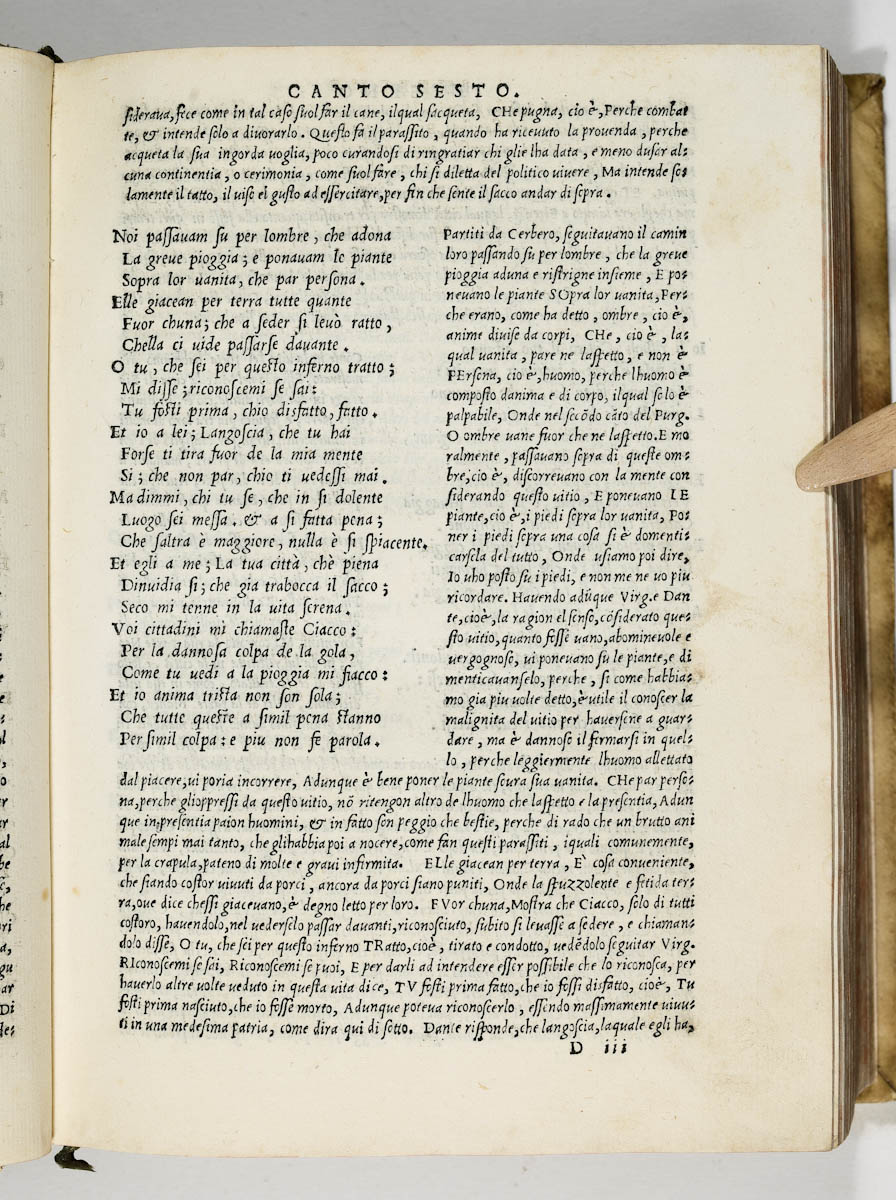 CANTO SESTO.
siderava, fece come in tal caso suol far il cane, ilqual sacqueta, CHe pugna, cio è, Perche combat
te, & intende solo a divorarlo. Questo fa il parassito, quando ha ricevuto la provenda, perche
acqueta la sua ingorda voglia, poco curandosi di ringratiar chi glie lha data, e meno dusar al=
cuna continentia, o cerimonia, come suol fare, chi si diletta del politico vivere, Ma intende so=
lamente il tatto, il viso el gusto ad essercitare, per fin che sente il sacco andar di sopra.
Noi passavam su per lombre, che adona
La greve pioggia; e ponavam le piante
Sopra lor vanita, che par persona.
Elle giacean per terra tutte quante
Fuor chuna; che a seder si levò ratto,
Chella ci vide passarse davante.
O tu, che sei per questo inferno tratto;
Mi disse; riconoscemi se sai:
Tu fosti prima, chio disfatto, fatto.
Et io a lei; Langoscia, che tu hai
Forse ti tira fuor de la mia mente
Si; che non par, chio ti vedessi mai.
Ma dimmi, chi tu se, che in si dolente
Luogo sei messa. & a si fatta pena;
Che saltra è maggiore, nulla è si spiacente.
Et egli a me; La tua città, chè piena
Dinvidia si; che gia trabocca il sacco;
Seco mi tenne in la vita serena.
Voi cittadini mi chiamaste Ciacco:
Per la dannosa colpa de la gola,
Come tu vedi a la pioggia mi fiacco:
Et io anima trista non son sola;
Che tutte queste a simil pena stanno
Per simil colpa: e piu non fe parola.
Partiti da Cerbero, seguitavano il camin
loro passando su per lombre, che la greve
pioggia aduna e ristrigne insieme, E po=
nevano le piante SOpra lor vanita, Per=
che erano, come ha detto, ombre, cio è,
anime divise da corpi, CHe, cio è, la=
qual vanita, pare ne laspetto, e non è
PErsona, cio è, huomo, perche lhuomo è
composto danima e di corpo, ilqual solo è
palpabile, Onde nel secõdo cãto del Purg.
O ombre vane fuor che ne laspetto. E mo
ralmente, passavano sopra di queste om=
bre, cio è, discorrevano con la mente con
siderando questo vitio, E ponevano LE
piante, cio è, i piedi sopra lor vanita, Po=
ner i piedi sopra una cosa si è domenti=
carsela del tutto, Onde usiamo poi dire,
Io vho posto su i piedi, e non me ne vo piu
ricordare. Havendo adũque Virg. e Dan
te, cioè, la ragion el senso, cõsiderato que=
sto vitio, quanto fosse vano, abominevole e
vergognoso, vi ponevano su le piante, e di
menticavanselo, perche, si come habbia=
mo gia piu volte detto, è utile il conoscer la
malignita del vitio per haversene a guar=
dare, ma è dannoso il fermarsi in quel=
lo, perche leggiermente lhuomo allettato
dal piacere, vi poria incorrere, Adunque è bene poner le piante sovra sua vanita. CHe par perso=
na, perche glioppressi da questo vitio, nõ ritengon altro de lhuomo che laspetto e la presentia, Adun
que in presentia paion huomini, & in fatto son peggio che bestie, perche di rado che un brutto ani
male sempi mai tanto, che glihabbia poi a nocere, come fan questi parassiti, iquali comunemente,
per la crapula, pateno di molte e gravi infirmita. ELle giacean per terra, E' cosa conveniente,
che siando costor vivuti da porci, ancora da porci siano puniti, Onde la spuzzolente e fetida ter=
ra, ove dice chessi giacevano, è degno letto per loro. FVor chuna, Mostra che Ciacco, solo di tutti
costoro, havendolo, nel vederselo passar davanti, riconosciuto, subito si levasse a sedere, e chiaman=
dolo disse, O tu, che sei per questo inferno TRatto, cioè, tirato e condotto, vedẽdolo seguitar Virg.
RIconoscemi se sai, Riconoscemi se puoi, E per darli ad intendere esser possibile che lo riconosca, per
haverlo altre volte veduto in questa vita dice, TV fosti prima fatto, che io fossi disfatto, cioè, Tu
fosti prima nasciuto, che io fosse morto, Adunque poteva riconoscerlo, essendo massimamente vivu=
ti in una medesima patria, come dira qui di sotto. Dante risponde, che langoscia, laquale egli ha,
D iii